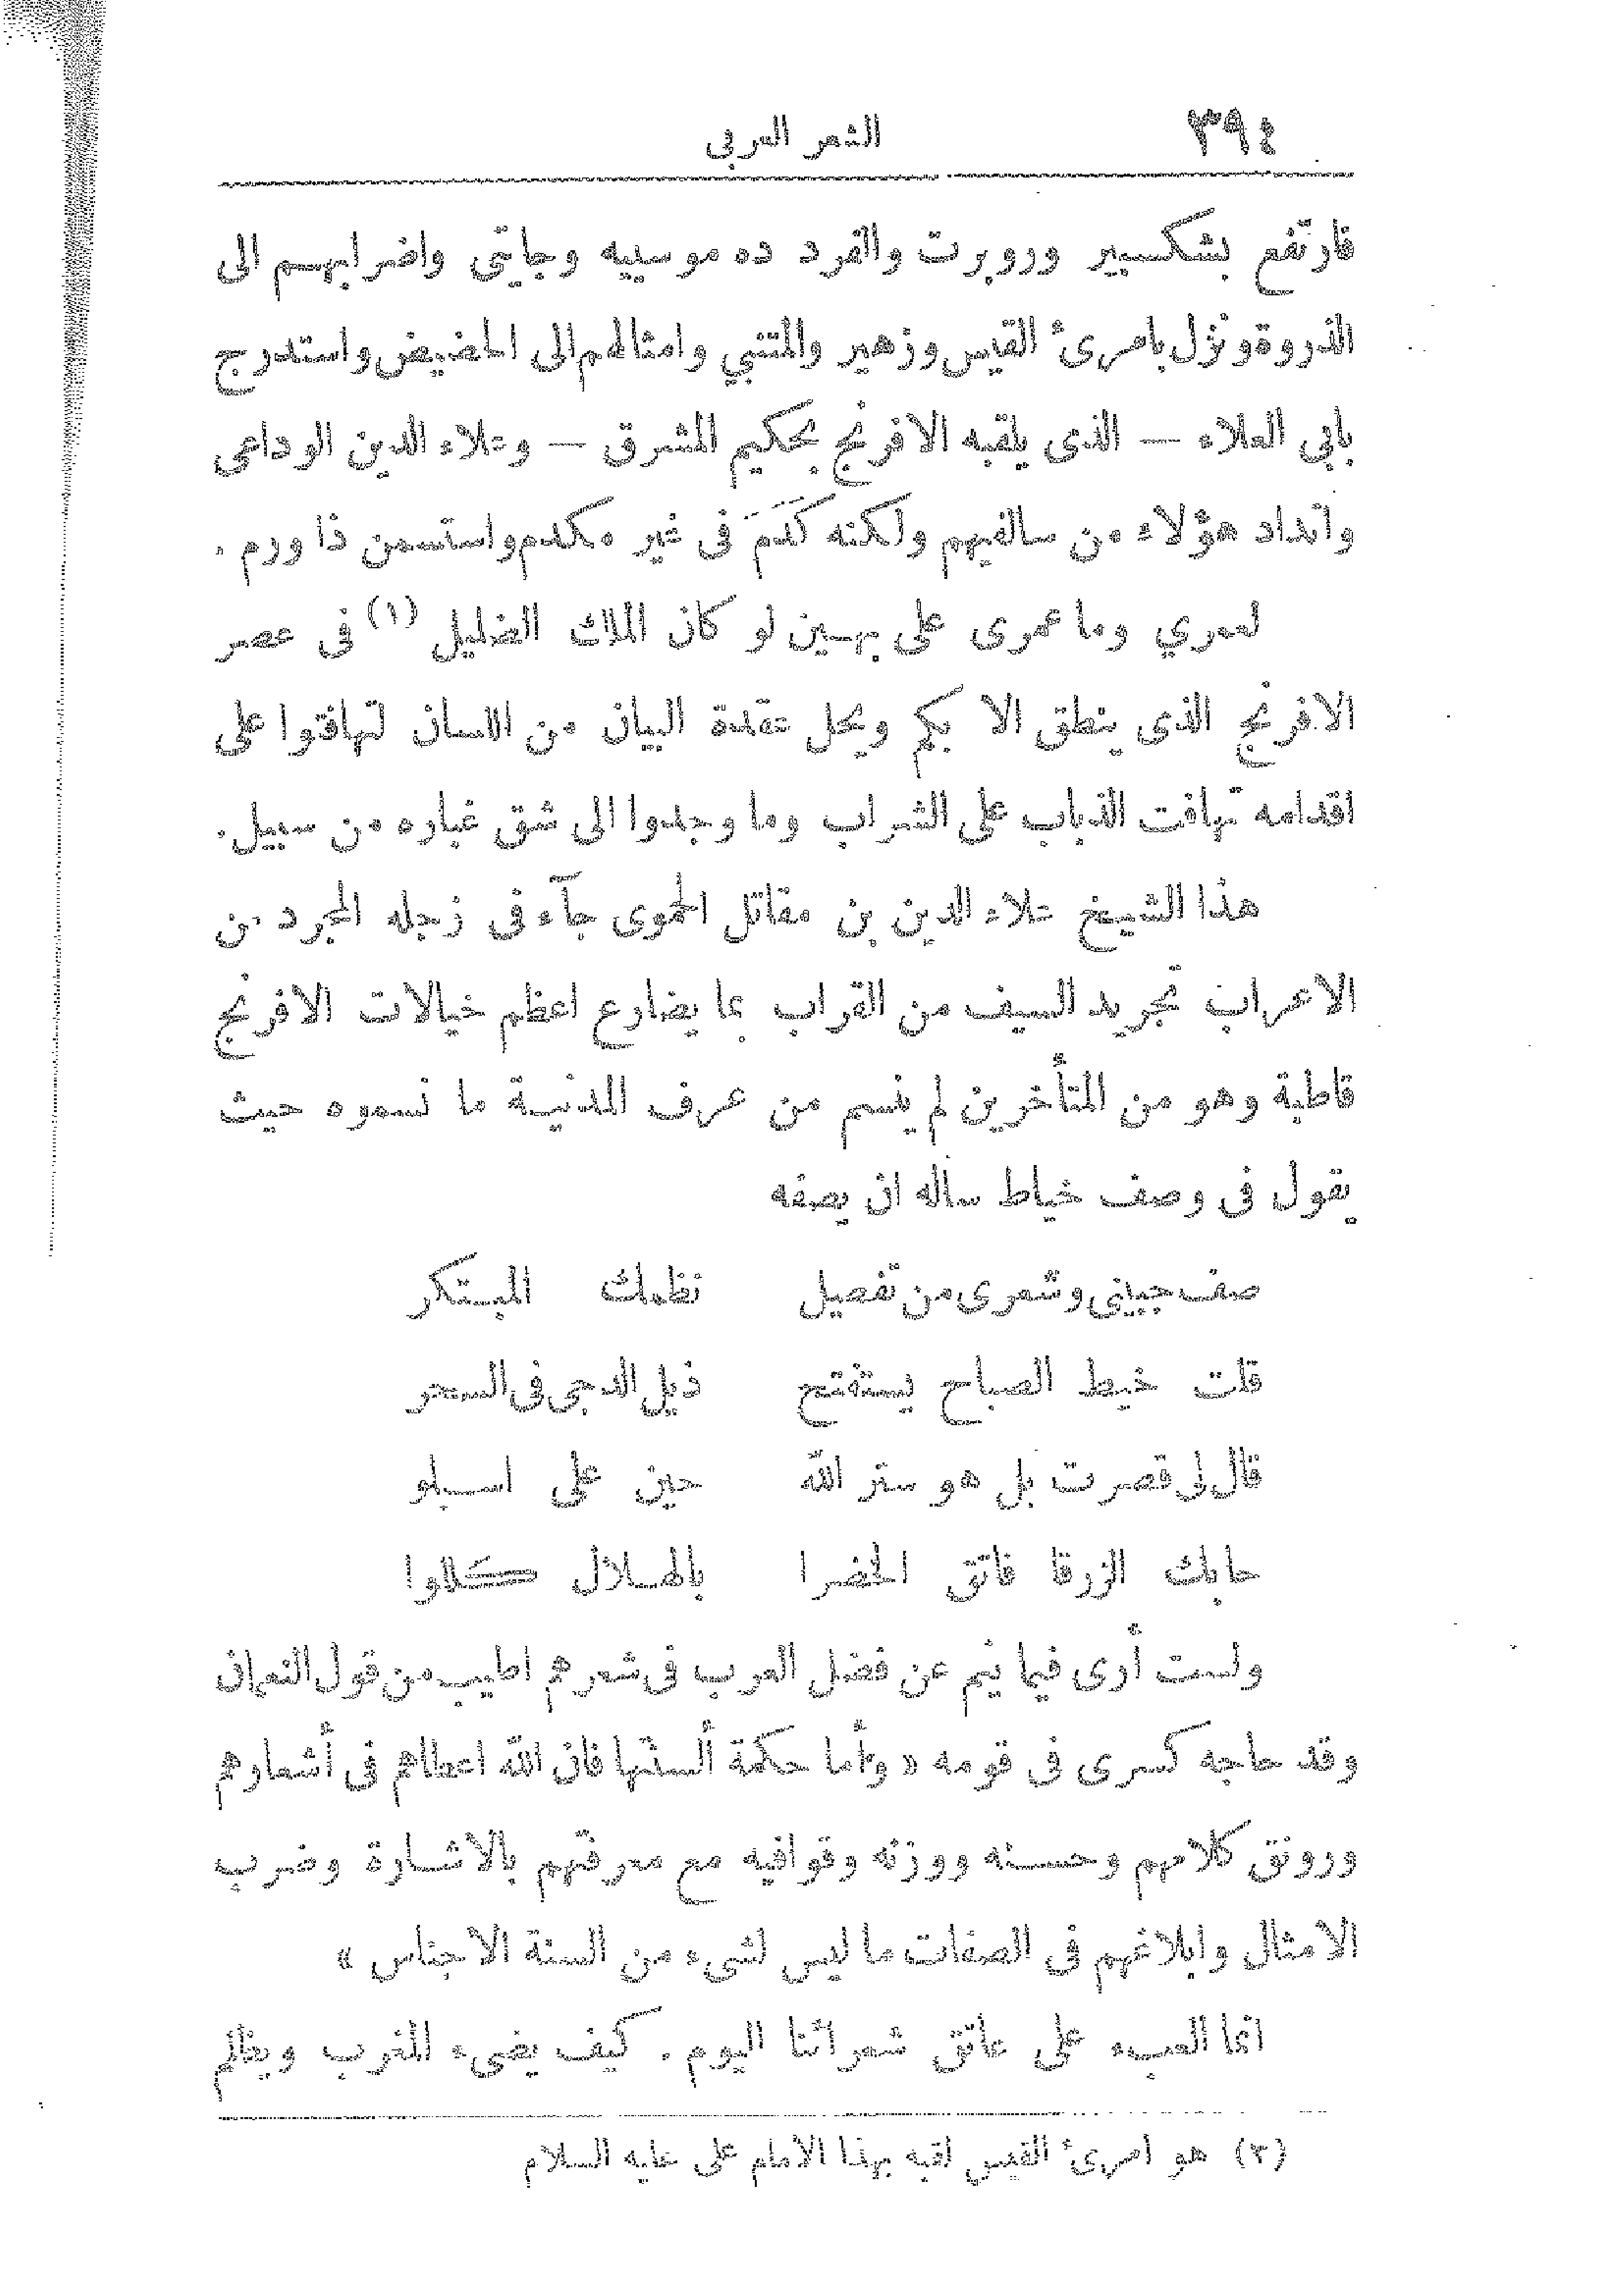 ٣٩٤
الشعر العربى
فارتفع بشكسبير وروبرت والفرد ده موسييه وجايتى واضرابهم الى
الذروة ونزل بامرىء القيس وزهير والمتنبي وامثالهم الى الحضيض واستدرج
بابي العلاء — الذى يلقبه الافرنج بحكيم المشرق — وعلاء الدين الوداعى
وانداد هؤلاء من سالفيهم ولكنه كَدَمَ فى غير مكدم واستسمن ذا ورم .
لعمري وما عمرى على بهين لو كان الملك الضليل (١) فى عصر
الافرنج الذى ينطق الا بكم ويحل عقدة البيان من اللسان لتهافتوا على
اقدامه تهافت الذباب على الشراب وما وجدوا الى شق غباره من سبيل .
هذا الشيخ علاء الدين بن مقاتل الحموى جآء فى زجله المجرد من
الاعراب تجريد السيف من القراب بما يضارع اعظم خيالات الافرنج
قاطبة وهو من المتأخرين لم ينسم من عرف المدنية ما نسموه حيث
يقول فى وصف خياط سأله ان يصفه
صف جبينى وشعرى من تفصيل نظمك المبتكر
قلت خيط الصباح يستفتح ذيل الدجى فى السحر
قال لى قصرت بل هو ستر الله حين على اسبلو
حابك الزرقا فاتق الخضرا بالهلال كللوا
ولست أرى فيما ينم عن فضل العرب فى شعرهم اطيب من قول النعمان
وقد حاجه كسرى فى قومه « وأما حكمة ألسنتها فان الله اعطاهم فى أشعارهم
ورونق كلامهم وحسنه ووزنه وقوافيه مع معرفتهم بالاشارة وضرب
الامثال وابلاغهم فى الصفات ما ليس لشىء من السنة الاجناس »
انما العبء على عاتق شعرائنا اليوم . كيف يضىء المغرب ويظلم
(٢) هو امرىء القيس لقبه بهذا الامام على عليه السلام